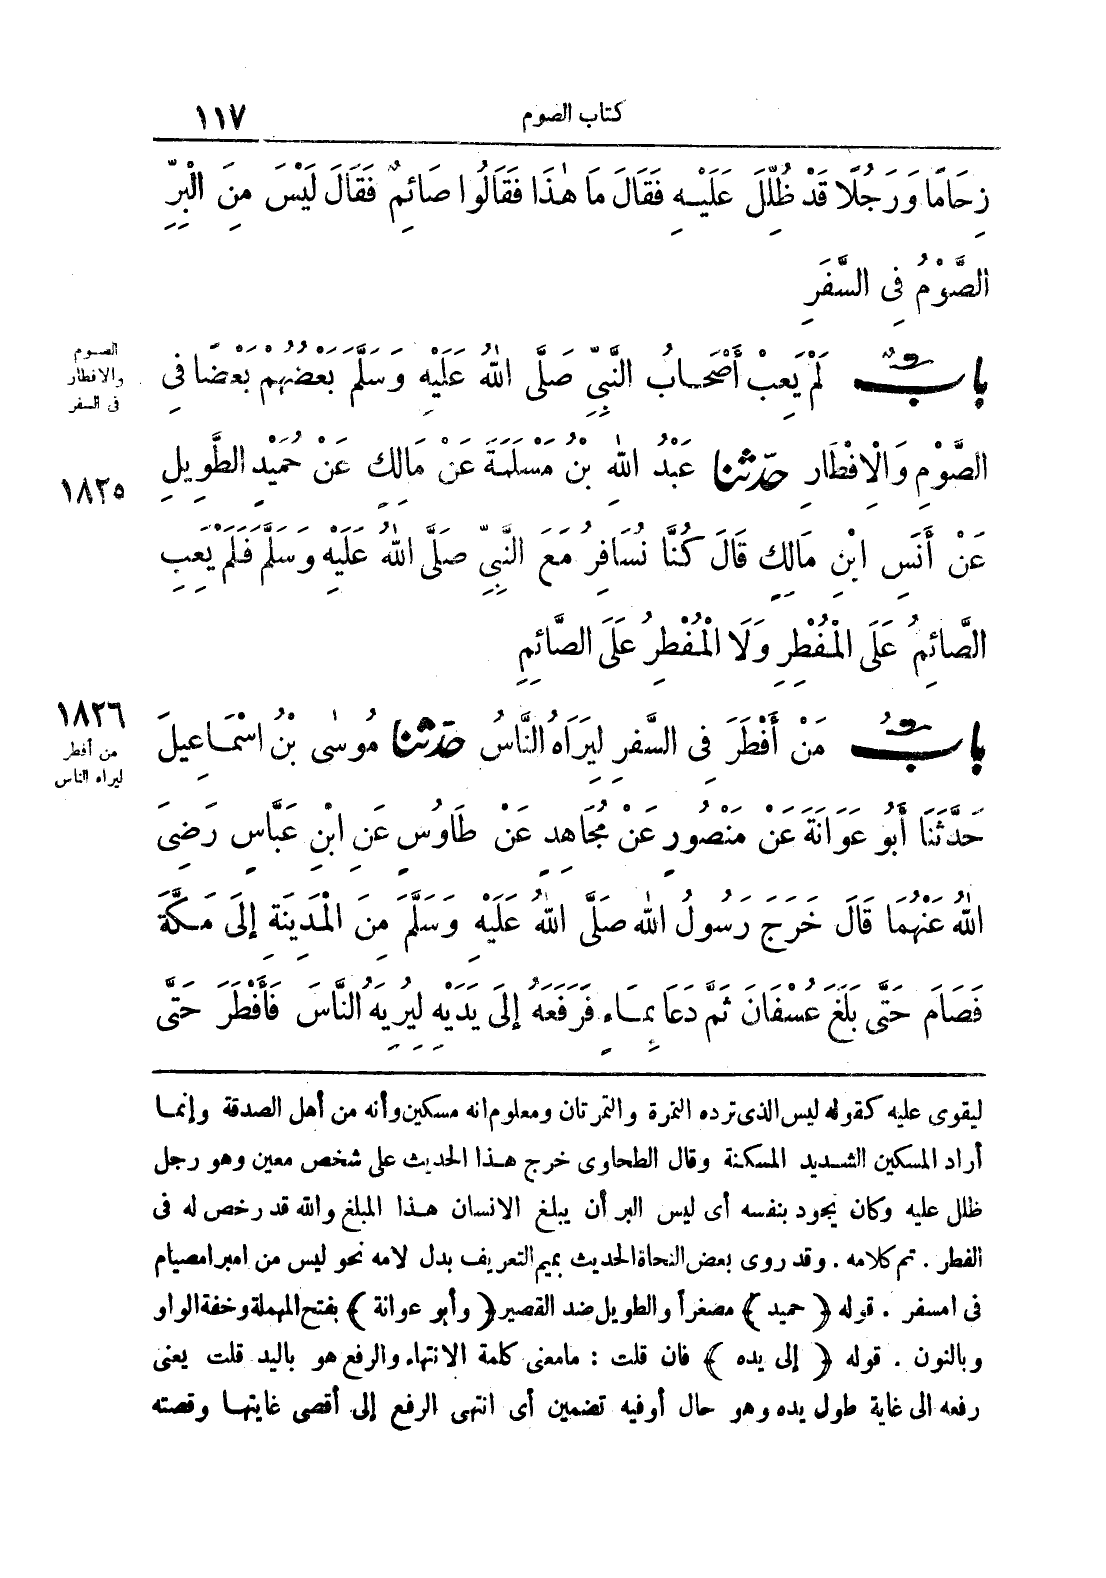 كتاب الصوم ١١٧
زِحَامًا وَرَجُلًا قَدْ ظُلِّلَ عَلَيْهِ فَقَالَ مَا هٰذَا فَقَالُوا صَائِمٌ فَقَالَ لَيْسَ مِنَ الْبِرِّ
الصَّوْمُ فِى السَّفَرِ
بابٌ لَمْ يَعِبْ أَصْحَابُ النَّبِيِّ صَلَّى اللهُ عَلَيْهِ وَسَلَّمَ بَعْضُهُمْ بَعْضًا فِى
الصوم
والافطار
فى السفر
الصَّوْمِ وَالْاِفْطَارِ حدّثنا عَبْدُ اللهِ بْنُ مَسْلَمَةَ عَنْ مَالِكٍ عَنْ حُمَيْدٍ الطَّوِيلِ
١٨٢٥
عَنْ أَنَسِ ابْنِ مَالِكٍ قَالَ كُنَّا نُسَافِرُ مَعَ النَّبِيِّ صَلَّى اللهُ عَلَيْهِ وَسَلَّمَ فَلَمْ يَعِبِ
الصَّائِمُ عَلَى الْمُفْطِرِ وَلَا الْمُفْطِرُ عَلَى الصَّائِمِ
بابُ مَنْ أَفْطَرَ فِى السَّفَرِ لِيَرَاهُ النَّاسُ حدّثنا مُوسٰى بْنُ اسْمَاعِيلَ
١٨٢٦
من أفطر
ليراه الناس
حَدَّثَنَا أَبُو عَوَانَةَ عَنْ مَنْصُورٍ عَنْ مُجَاهِدٍ عَنْ طَاوُسٍ عَنِ ابْنِ عَبَّاسٍ رَضِىَ
اللهُ عَنْهُمَا قَالَ خَرَجَ رَسُولُ اللهِ صَلَّى اللهُ عَلَيْهِ وَسَلَّمَ مِنَ الْمَدِينَةِ إِلَى مَكَّةَ
فَصَامَ حَتَّى بَلَغَ عُسْفَانَ ثُمَّ دَعَا بِمَاءٍ فَرَفَعَهُ إِلَى يَدَيْهِ لِيُرِيَهُ النَّاسَ فَأَفْطَرَ حَتَّى
ليقوى عليه كقوله ليس الذى ترده التمرة والتمرتان ومعلوم انه مسكين وأنه من أهل الصدقة وإنما
أراد المسكين الشديد المسكنة وقال الطحاوى خرج هذا الحديث على شخص معين وهو رجل
ظلل عليه وكان يجود بنفسه أى ليس البر أن يبلغ الانسان هذا المبلغ والله قد رخص له فى
الفطر . تم كلامه . وقد روى بعض النحاة الحديث بميم التعريف بدل لامه نحو ليس من امبر امصيام
فى امسفر . قوله ﴿ حميد ﴾ مصغراً والطويل ضد القصير ﴿ وأبو عوانة ﴾ بفتح المهملة وخفة الواو
وبالنون . قوله ﴿ إلى يده ﴾ فان قلت : مامعنى كلمة الانتهاء والرفع هو باليد قلت يعنى
رفعه الى غاية طول يده وهو حال أوفيه تضمين أى انتهى الرفع إلى أقصى غايتها وقصته